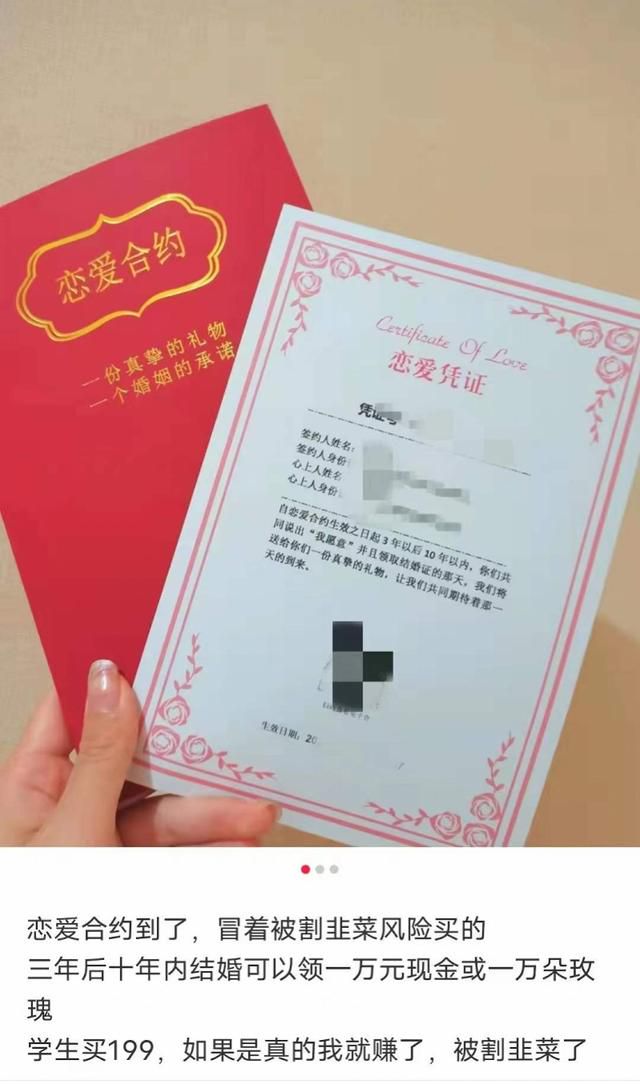 恋爱合约
一份真挚的礼物
一个婚姻的承诺
Certificate Of Love
恋爱凭证
凭证号
签约人姓名:
签约人身份
心上人姓名
心上人身份:
自恋爱合约生效之日起3年以后10年以内，你们共
同说出“我愿意”并且领取结婚证的那天，我们将
送给你们一份真挚的礼物，让我们共同期待着那一
天的到来。
生效日期: 20
恋爱合约到了，冒着被割韭菜风险买的
三年后十年内结婚可以领一万元现金或一万朵玫
瑰
学生买199，如果是真的我就赚了，被割韭菜了